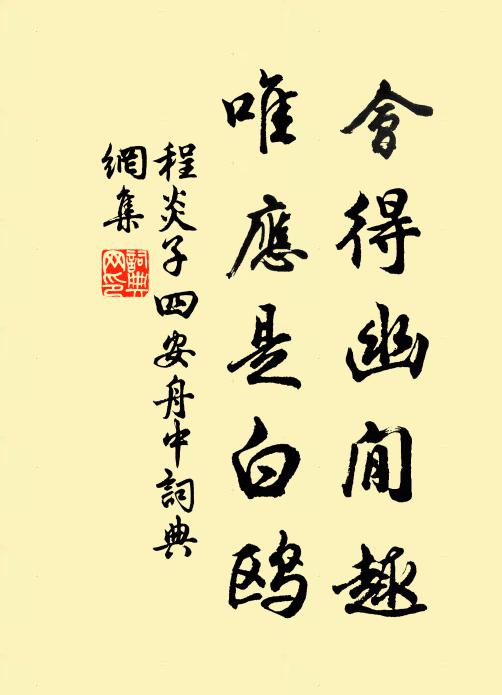 會得幽閒趣
唯應是白鷗
程炎子四安舟中詞典
網集
詞典网印